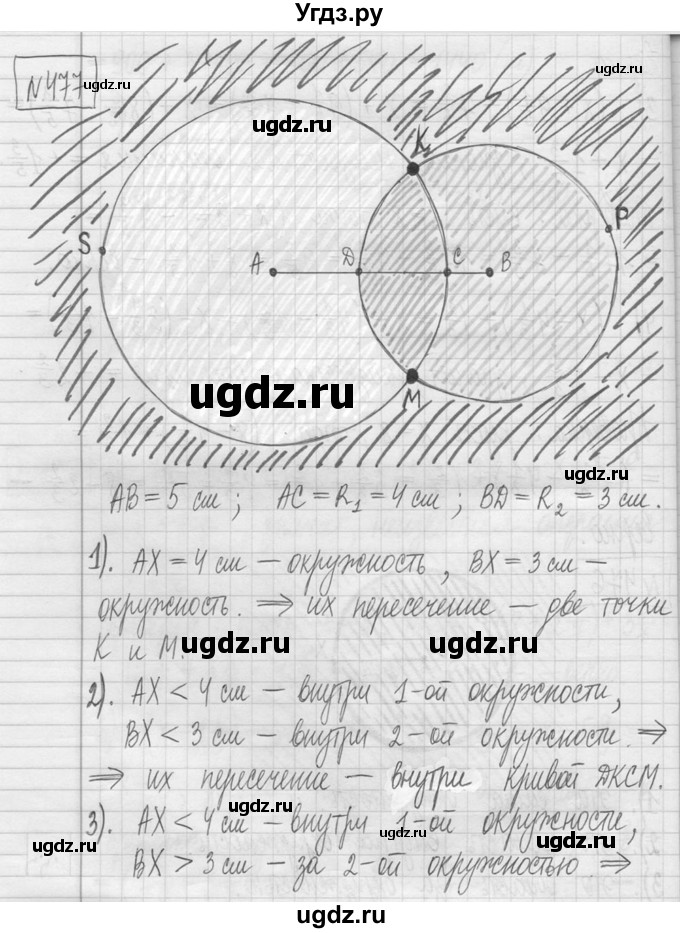 Угдз.ру
№477
ugdz.ru
ugdz.ru
ugdz.ru
K
P
S
A
D
C
B
ugdz.ru
M
AB = 5 см ; AC = R₁ = 4 см ; BD = R₂ = 3 см.
1). AX = 4 см – окружность, BX = 3 см –
окружность. ⇒ их пересечение – две точки
K и M.
ugdz.ru
ugdz.ru
2). AX < 4 см – внутри 1-ой окружности,
BX < 3 см – внутри 2-ой окружности. ⇒
⇒ их пересечение – внутри кривой DKCM.
ugdz.ru
3). AX < 4 см – внутри 1-ой окружности,
ugdz.ru
ugdz.ru
ugdz.ru
BX > 3 см – за 2-ой окружностью. ⇒
ugdz.ru